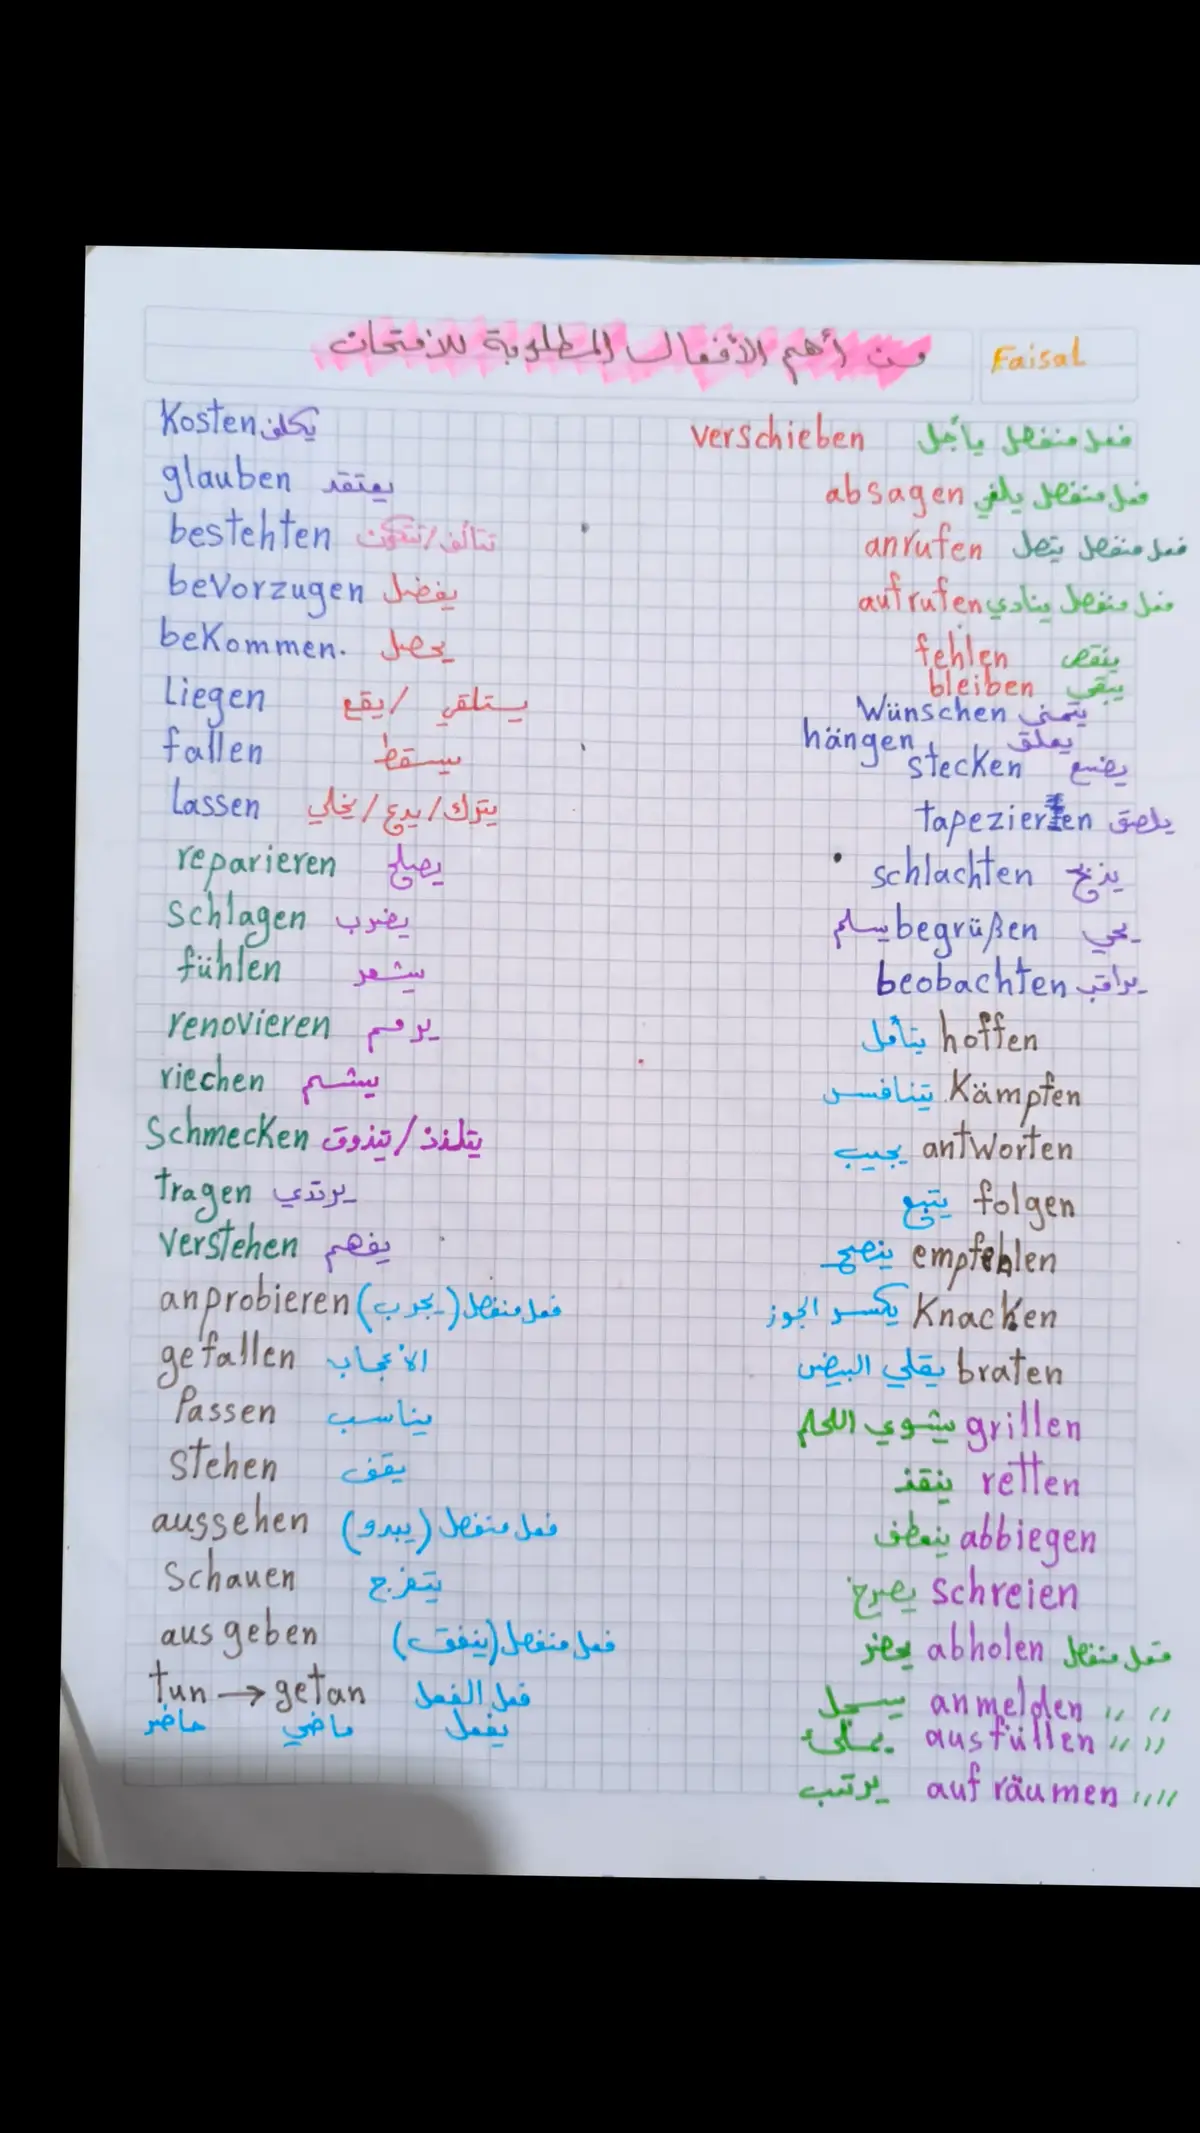 من أهم الأفعال المطلوبة للامتحان
Faisal
Kosten يكلف
glauben يعتقد
bestehten تتألف/تتكون
bevorzugen يفضل
beKommen. يحصل
Liegen يستلقي / يقع
fallen يسقط
Lassen يترك/يدع/يخلي
reparieren يصلح
Schlagen يضرب
fühlen يشعر
renovieren يرمم
riechen يشم
Schmecken يتلذذ/تيذوق
tragen يرتدي
Verstehen يفهم
anprobieren (يجرب) فعل منفصل
gefallen الأعجاب
Passen يناسب
Stehen يقف
aussehen (يبدو) فعل منفصل
Schauen يتفرج
ausgeben (ينفق) فعل منفصل
tun → getan فعل الفعل
حاضر ماضي يفعل
verschieben فعل منفصل يأجل
absagen فعل منفصل يلغي
anrufen فعل منفصل يتصل
aufrufen فعل منفصل ينادي
fehlen ينقص
bleiben يبقى
Wünschen يتمنى
hängen يعلق
stecken يضع
tapezieren يلصق
schlachten يذبح
يسلم begrüßen يحي
beobachten يراقب
يتأمل hoffen
يتنافس Kämpfen
يجيب antworten
يتبع folgen
ينصح empfehlen
يكسر الجوز Knacken
يقلي البيض braten
يشوي اللحم grillen
ينقذ retten
ينعطف abbiegen
يصرخ schreien
يحضر abholen فعل منفصل
يسجل anmelden ,, ,,
يملئ ausfüllen ,, ,,
يرتب aufräumen ,, ,,